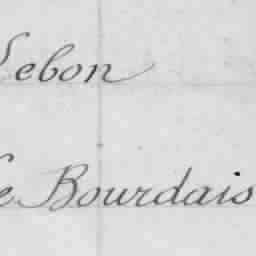 Lebon
Le Bourdais